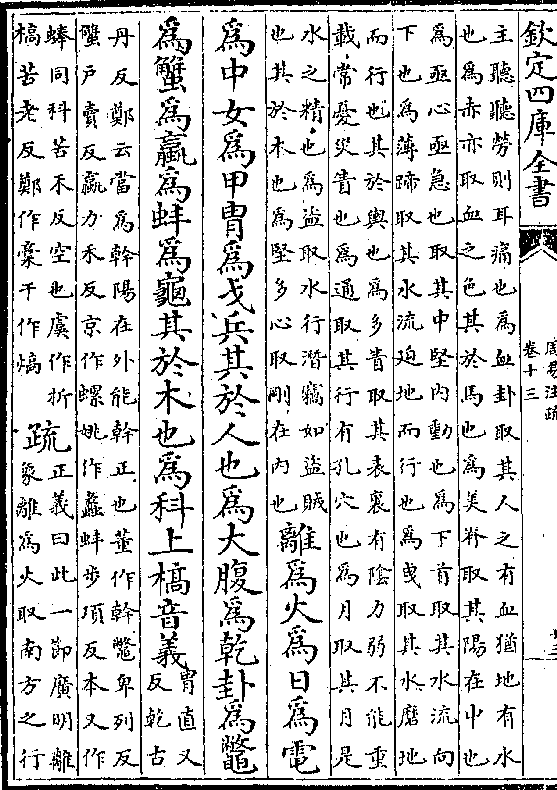 欽定四庫全書
周易注疏
卷十三
主聽聽勞則耳痛也為血卦取其人之有血猶地有水
也為赤亦取血之色其於馬也為美脊取其陽在中也
為亟心亟急也取其中堅內動也為下首取其水流向
下也為薄蹄取其水流迫地而行也為曳取其水磨地
而行也其於輿也為多眚取其表裏有陰力弱不能重
載常憂災眚也為通取其行有孔穴也為月取其月是
水之精也為盜取水行潛竊如盜賊
也其於木也為堅多心取剛在內也
離為火為日為電
為中女為甲冑為戈兵其於人也為大腹為乾卦為鼈
為蟹為蠃為蚌為龜其於木也為科上槁音義
冑直又
反乾古
丹反鄭云當為幹陽在外能幹正也董作幹鼈卑列反
蟹戶賣反蠃力禾反京作螺姚作蠡蚌步項反本又作
蜯同科苦禾反空也虞作折
槁苦老反鄭作藁干作熇
疏
正義曰此一節廣明離
象離為火取南方之行